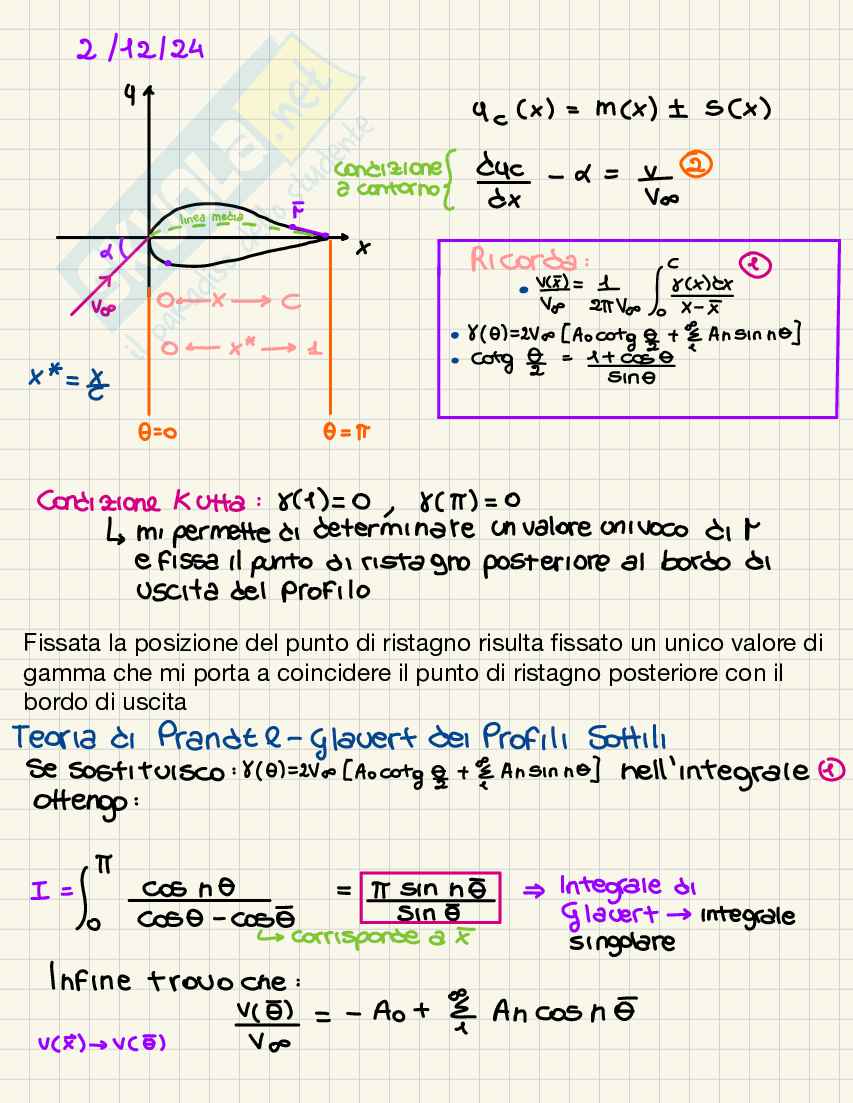 2/12/24
y
y_c(x) = m(x) ± s(x)
condizione a contorno { dyc/dx - α = v/V∞ (2)
linea media
r̄
x
α
V∞
0 ← x → C
0 ← x* → 1
x* = x/c
θ=0
θ=π
Ricorda:
• v(x̄)/V∞ = 1/2πV∞ ∫₀ᶜ γ(x)dx/x-x̄ (1)
• γ(θ)=2V∞[A₀cotg θ/2 + Σ₁^∞ An sin nθ]
• cotg θ/2 = 1+cosθ/sinθ
Condizione Kutta: γ(1)=0, γ(π)=0
↳ mi permette di determinare un valore univoco di Γ
e fissa il punto di ristagno posteriore al bordo di
uscita del profilo
Fissata la posizione del punto di ristagno risulta fissato un unico valore di
gamma che mi porta a coincidere il punto di ristagno posteriore con il
bordo di uscita
Teoria di Prandtl-Glauert dei Profili Sottili
Se sostituisco: γ(θ)=2V∞[A₀cotg θ/2 + Σ₁^∞ An sin nθ] nell'integrale (1)
ottengo:
I = ∫₀^π cos nθ/cosθ-cosθ̄ = π sin nθ̄/sin θ̄ ⇒ Integrale di
Glauert → integrale
singolare
↳ corrisponde a x̄
Infine trovo che:
v(θ̄)/V∞ = - A₀ + Σ₁^∞ An cos n θ̄
v(x̄) → v(θ̄)